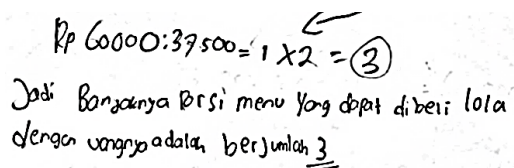 Rp 60000:37500 = 1 X 2 = 3
Jadi Banyaknya Porsi menu Yang dapat dibeli lola
dengan uangnya adalah berjumlah 3